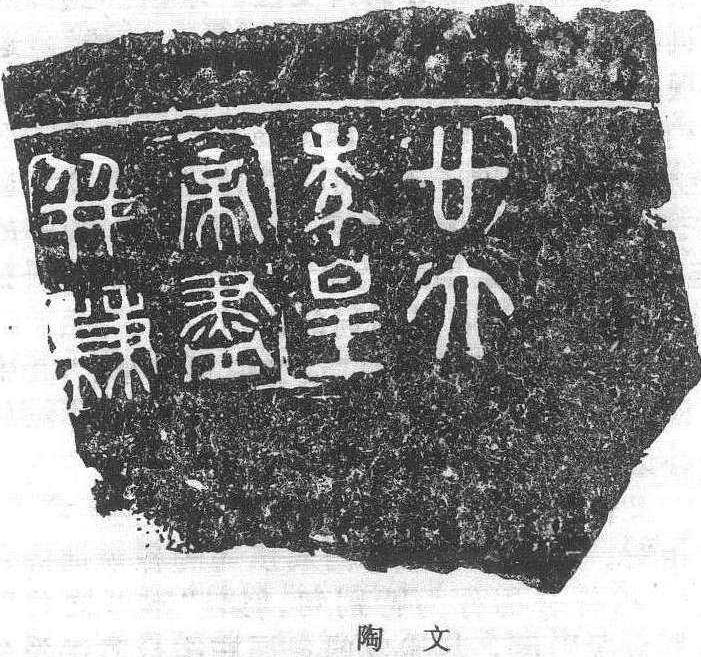 廿六
年皇
帝盡
并兼
陶文